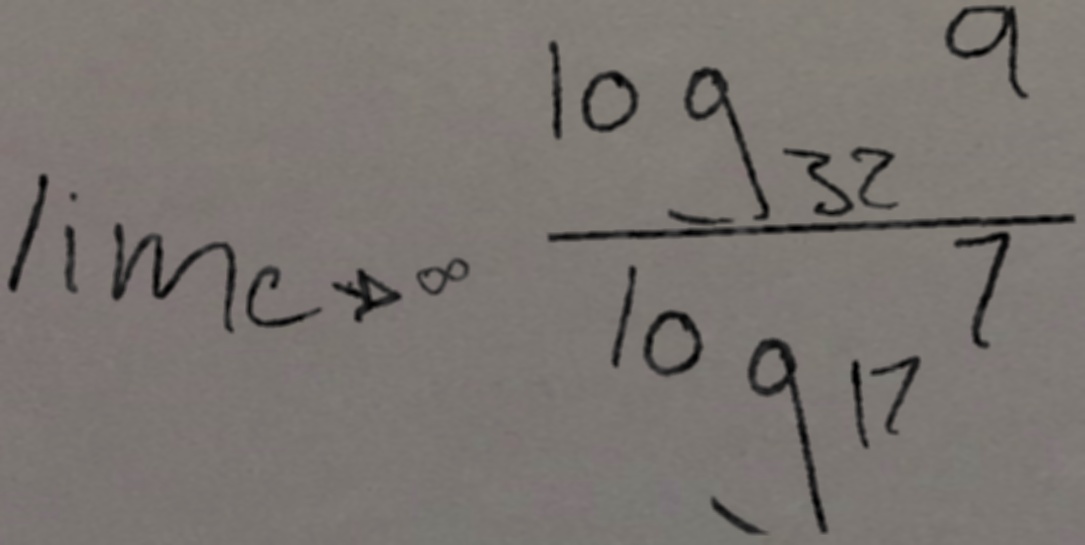 lim_{c→∞} \frac{log_{32} 9}{log_{17} 7}